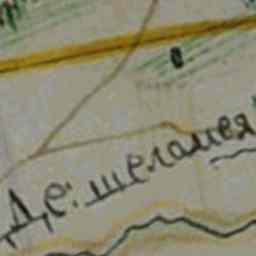 Де: шеломея